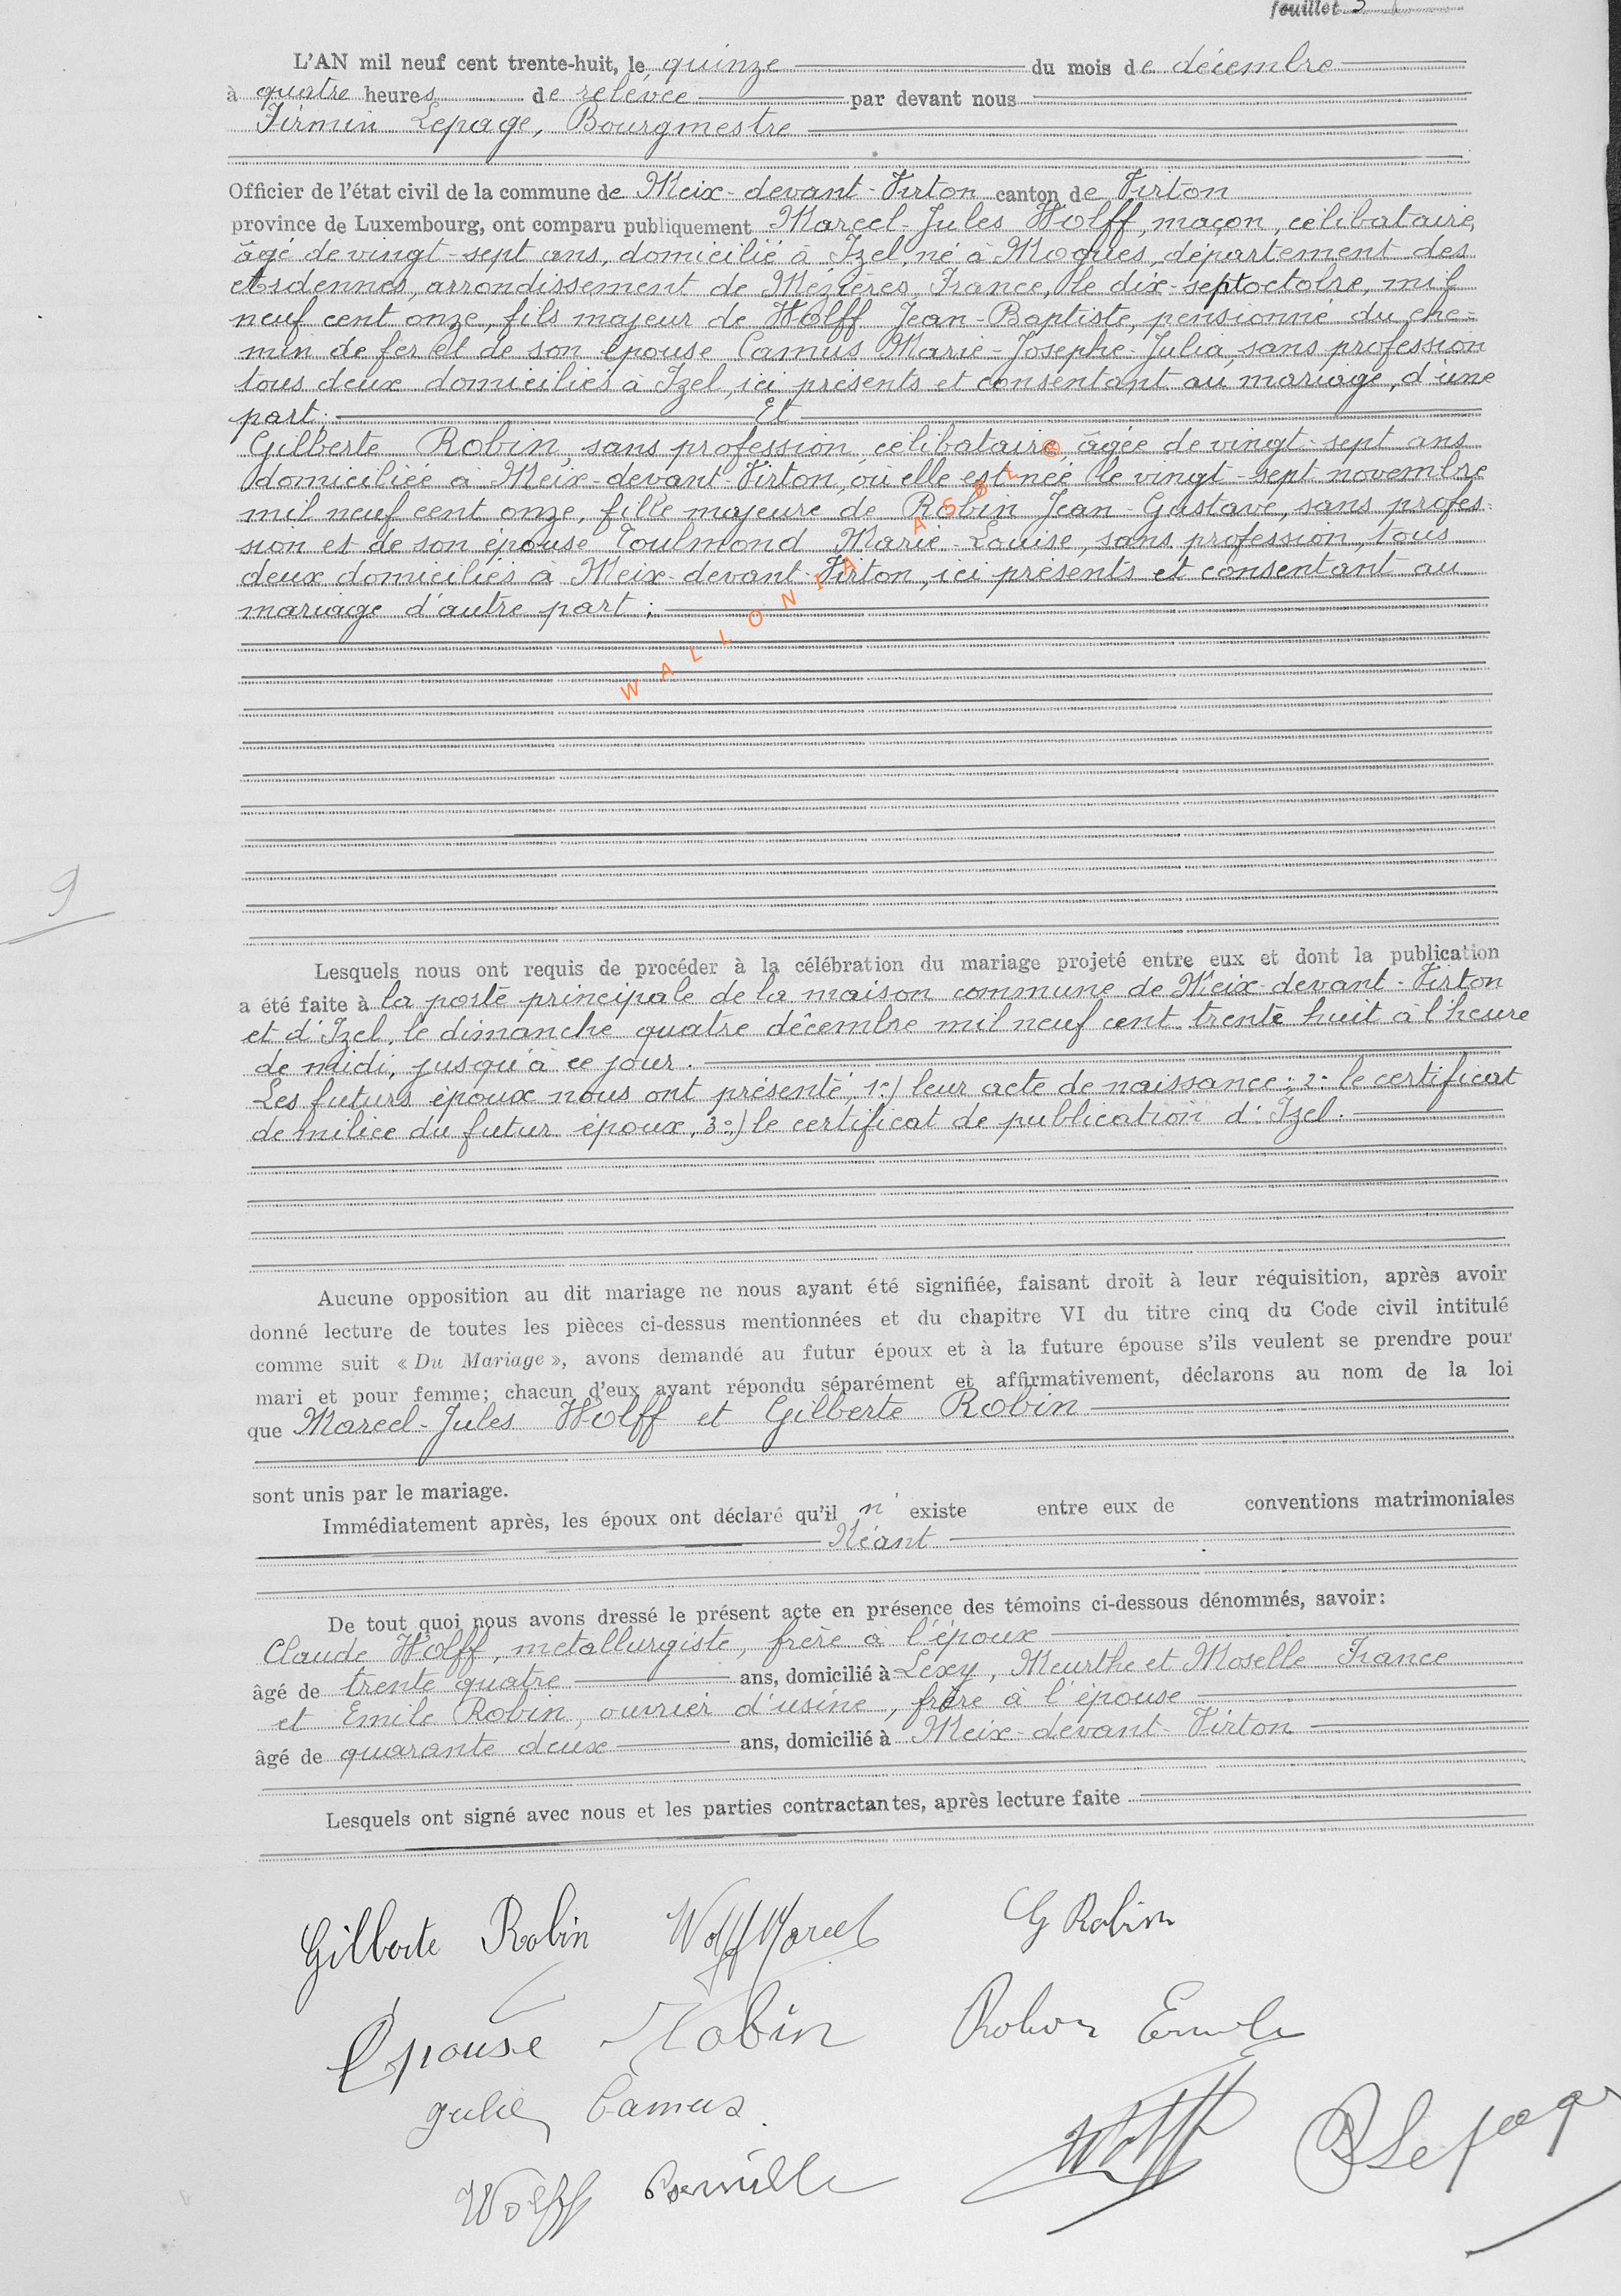 fouillet 3
L'AN mil neuf cent trente-huit, le quinze du mois de décembre
à quatre heures de relevée par devant nous
Firmin Lepage, Bourgmestre
Officier de l'état civil de la commune de Meix-devant-Virton canton de Virton
province de Luxembourg, ont comparu publiquement Marcel-Jules Wolff, maçon, célibataire,
âgé de vingt-sept ans, domicilié à Izel, né à Mogues, département des
Ardennes, arrondissement de Mézières, France, le dix-sept octobre, mil
neuf cent onze, fils majeur de Wolff Jean-Baptiste, pensionné du che-
min de fer et de son épouse Camus Marie-Josephe-Julia, sans profession
tous deux domiciliés à Izel, ici présents et consentant au mariage, d'une
part; Et
Gilberte Robin, sans profession, célibataire, âgée de vingt-sept ans
domiciliée à Meix-devant-Virton, où elle est née le vingt-sept novembre
mil neuf cent onze, fille majeure de Robin Jean-Gustave, sans profes-
sion et de son épouse Toulmond Marie-Louise, sans profession, tous
deux domiciliés à Meix-devant-Virton, ici présents et consentant au
mariage d'autre part;
WALLONIA ASBL ©
9
Lesquels nous ont requis de procéder à la célébration du mariage projeté entre eux et dont la publication
a été faite à la porte principale de la maison commune de Meix-devant-Virton
et d'Izel, le dimanche quatre décembre mil neuf cent trente huit à l'heure
de midi, jusqu'à ce jour.
Les futurs époux nous ont présenté, 1°) leur acte de naissance; 2° le certificat
de milice du futur époux, 3°) le certificat de publication d'Izel.
Aucune opposition au dit mariage ne nous ayant été signifiée, faisant droit à leur réquisition, après avoir
donné lecture de toutes les pièces ci-dessus mentionnées et du chapitre VI du titre cinq du Code civil intitulé
comme suit « Du Mariage », avons demandé au futur époux et à la future épouse s'ils veulent se prendre pour
mari et pour femme; chacun d'eux ayant répondu séparément et affirmativement, déclarons au nom de la loi
que Marcel-Jules Wolff et Gilberte Robin
sont unis par le mariage.
Immédiatement après, les époux ont déclaré qu'il n'existe entre eux de conventions matrimoniales
Néant
De tout quoi nous avons dressé le présent acte en présence des témoins ci-dessous dénommés, savoir:
Claude Wolff, metallurgiste, frère à l'époux
âgé de trente quatre ans, domicilié à Lexy, Meurthe et Moselle France
et Emile Robin, ouvrier d'usine, frère à l'épouse
âgé de quarante deux ans, domicilié à Meix-devant-Virton
Lesquels ont signé avec nous et les parties contractantes, après lecture faite
Gilberte Robin Wolff Marcel G Robin
Epouse Robin Robin Emile
Julie Camus
Wolff Wolff Lepage